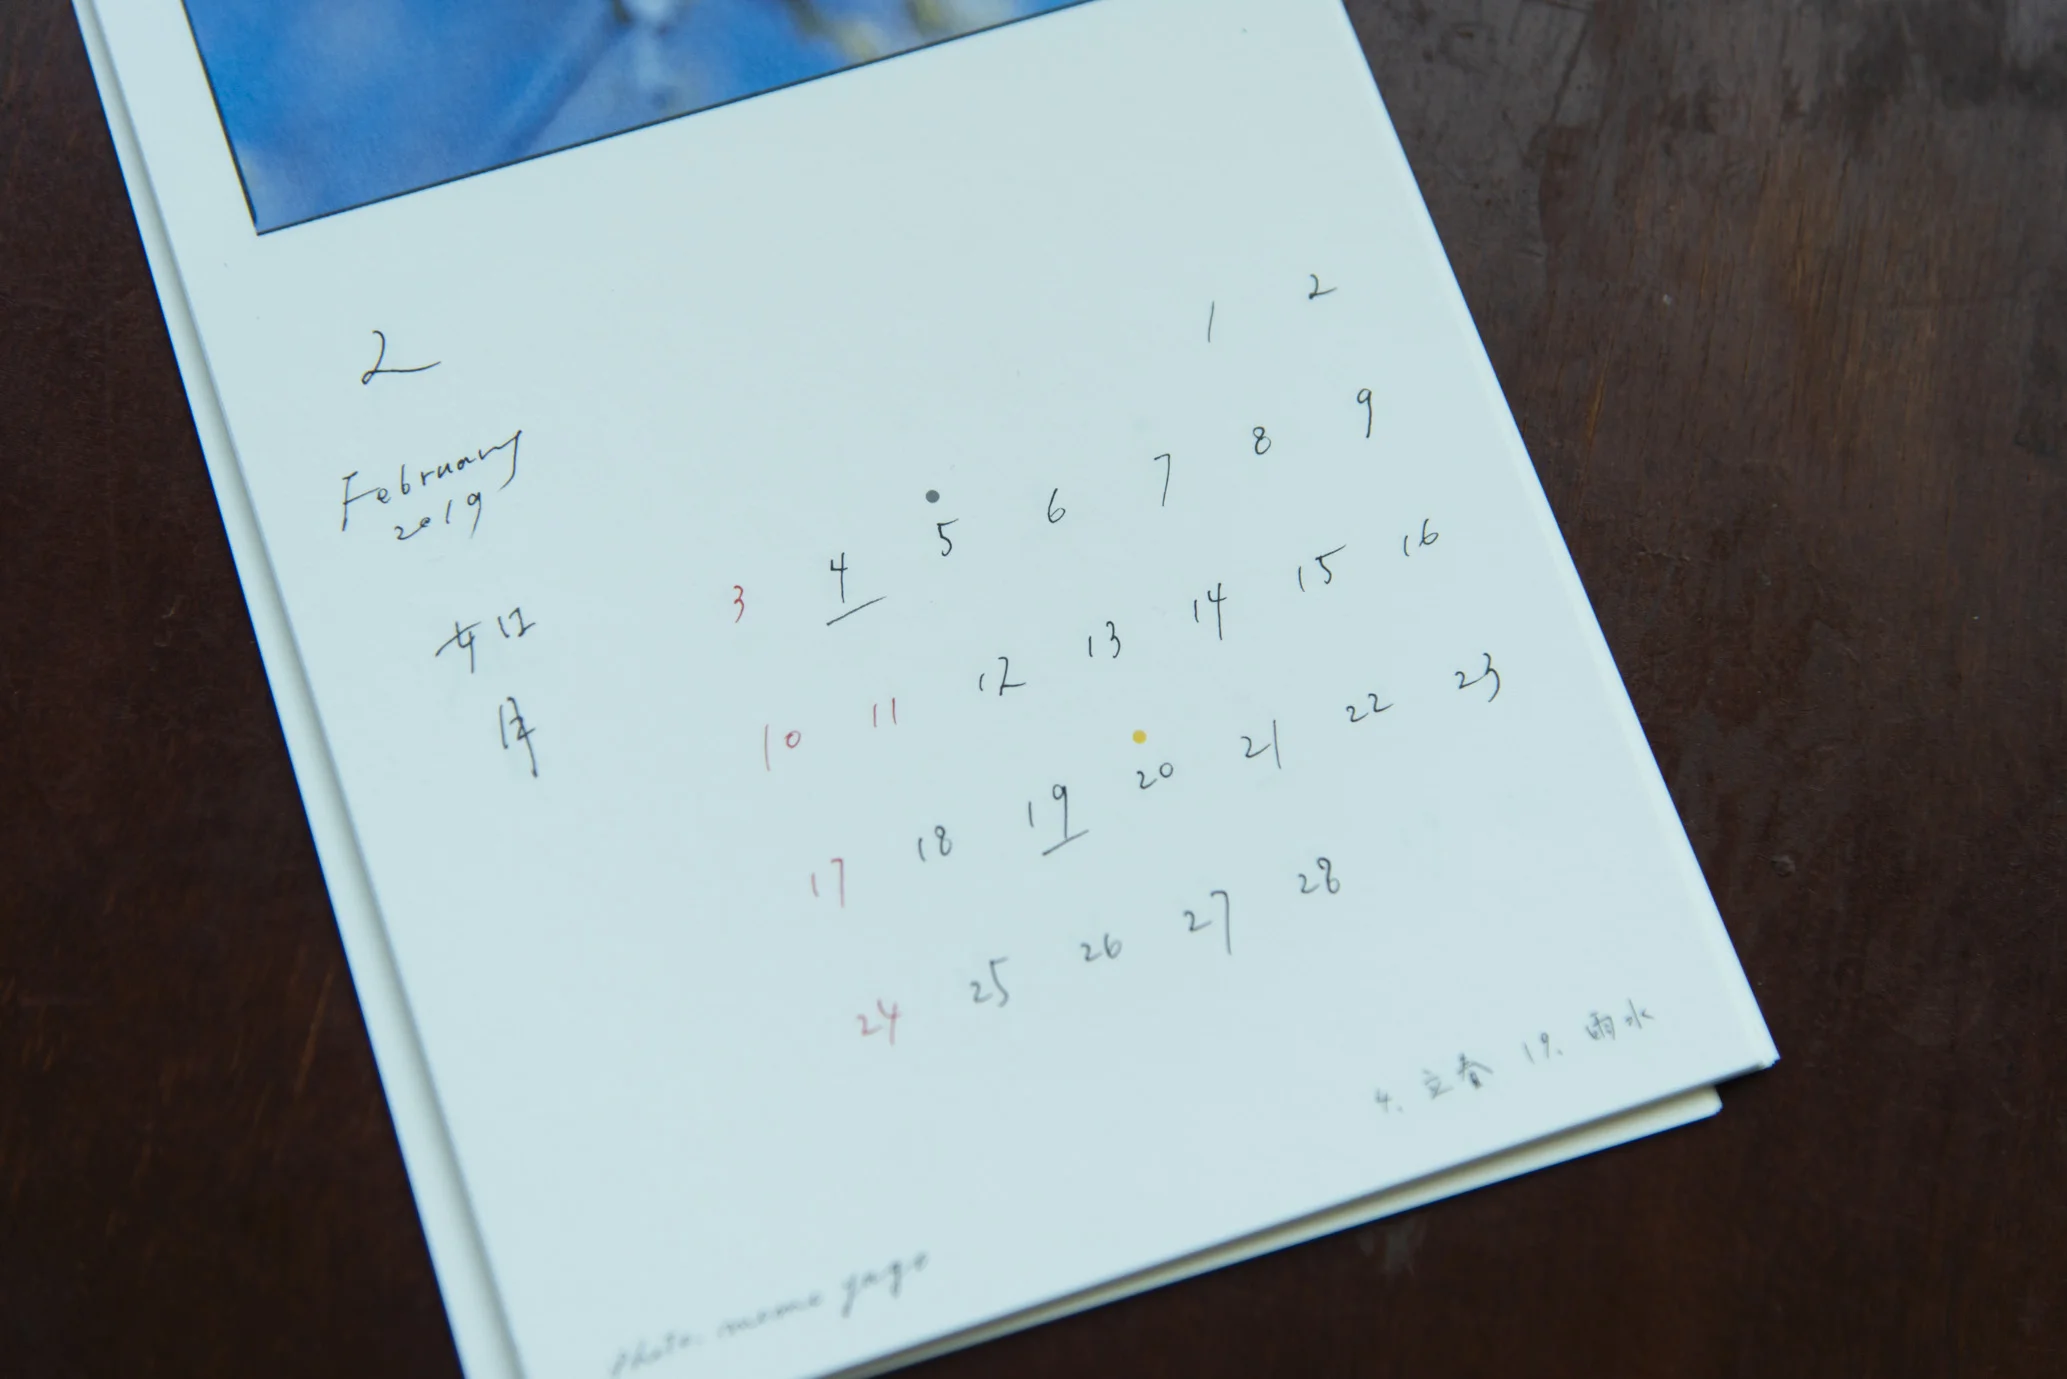 2
February
2019
如月
1 2
3 4 5 6 7 8 9
10 11 12 13 14 15 16
17 18 19 20 21 22 23
24 25 26 27 28
4. 立春 19. 雨水
photo. momo yago